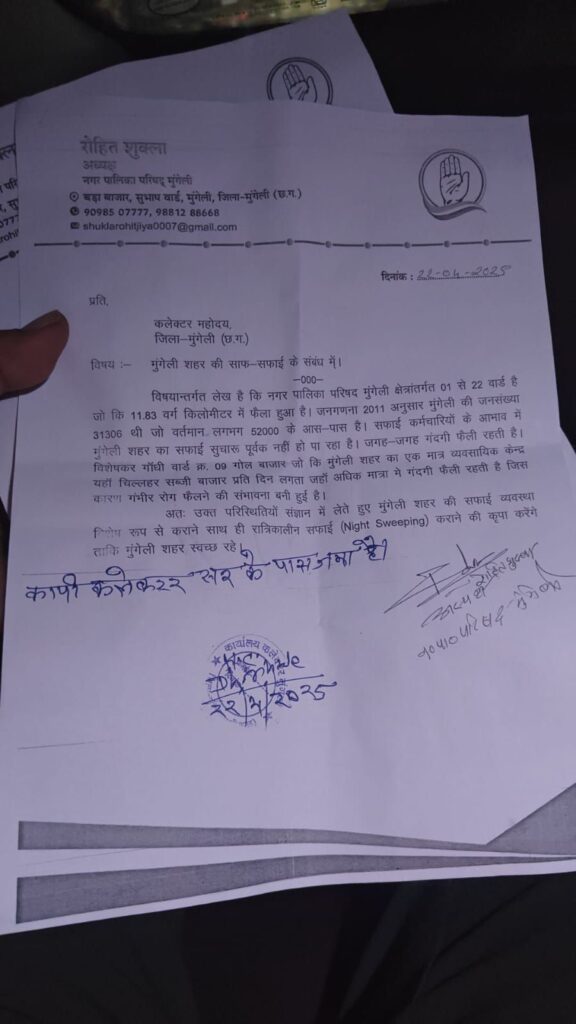 रोहित शुक्ला
अध्यक्ष
नगर पालिका परिषद् मुंगेली
बड़ा बाजार, सुभाष वार्ड, मुंगेली, जिला-मुंगेली (छ.ग.)
90985 07777, 98812 88668
shuklarohitjiya0007@gmail.com
दिनांक : 22-04-2025
प्रति,
कलेक्टर महोदय,
जिला-मुंगेली (छ.ग.)
विषय :- मुंगेली शहर की साफ-सफाई के संबंध में।
-000-
विषयान्तर्गत लेख है कि नगर पालिका परिषद मुंगेली क्षेत्रांतर्गत 01 से 22 वार्ड है
जो कि 11.83 वर्ग किलोमीटर में फैला हुआ है। जनगणना 2011 अनुसार मुंगेली की जनसंख्या
31306 थी जो वर्तमान लगभग 52000 के आस-पास है। सफाई कर्मचारियों के आभाव में
मुंगेली शहर का सफाई सुचारू पूर्वक नहीं हो पा रहा है। जगह-जगह गंदगी फैली रहती है।
विशेषकर गाँधी वार्ड क्र. 09 गोल बाजार जो कि मुंगेली शहर का एक मात्र व्यवसायिक केन्द्र
यहाँ चिल्लहर सब्जी बाजार प्रति दिन लगता जहाँ अधिक मात्रा मे गंदगी फैली रहती है जिस
कारण गंभीर रोग फैलने की संभावना बनी हुई है।
अतः उक्त परिस्थितियों संज्ञान में लेते हुए मुंगेली शहर की सफाई व्यवस्था
विशेष रूप से कराने साथ ही रात्रिकालीन सफाई (Night Sweeping) कराने की कृपा करेंगे
ताकि मुंगेली शहर स्वच्छ रहे।
कापी कलेक्टर सर के पास जमा है।
रोहित शुक्ला
अध्यक्ष
न०पा०परिषद मुंगेली
कार्यालय कलेक्टर
22/4/2025